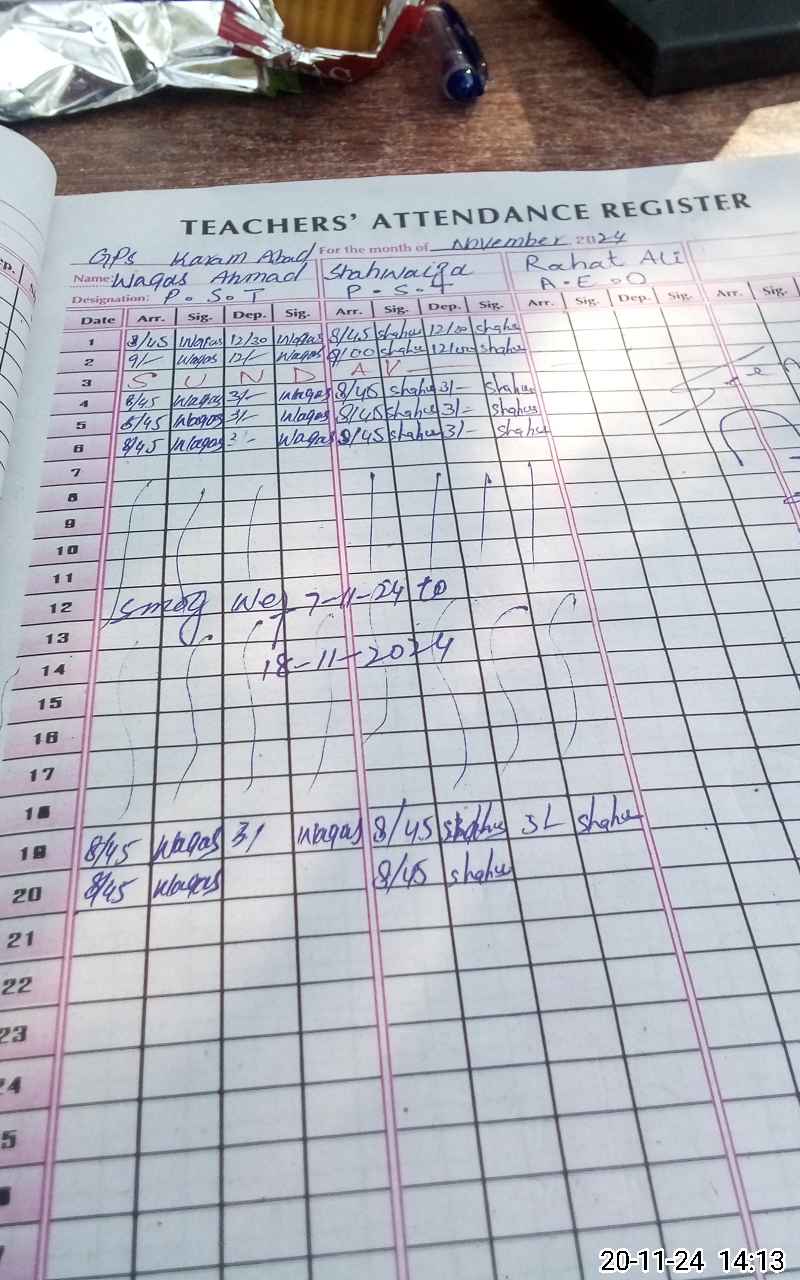 TEACHERS' ATTENDANCE REGISTER
GPs Karam Abad For the month of November 2024
Name: Waqas Ahmad Shahwaiza Rahat Ali
Designation: P.S.T P.S.T A.E.O
Date Arr. Sig. Dep. Sig. Arr. Sig. Dep. Sig. Arr. Sig. Dep. Sig. Arr. Sig.
1 8/45 Waqas 12/30 Waqas 8/45 shahu 12/00 shahu
2 9/- Waqas 12/- Waqas 9/00 shahu 12/00 shahu
3 S U N D A Y
4 8/45 Waqas 3/- Waqas 8/45 shahu 3/- shahu
5 8/45 Waqas 3/- Waqas 8/45 shahu 3/- shahu
6 8/45 Waqas Waqas 8/45 shahu 3/- shahu
7
8
9
10
11
12 smog 7-11-24 to
13
14 18-11-2024
15
16
17
18
19 8/45 Waqas 3/ Waqas 8/45 shahu 3/- shahu
20 8/45 Waqas 8/45 shahu
21
22
23
24
5
20-11-24 14:13